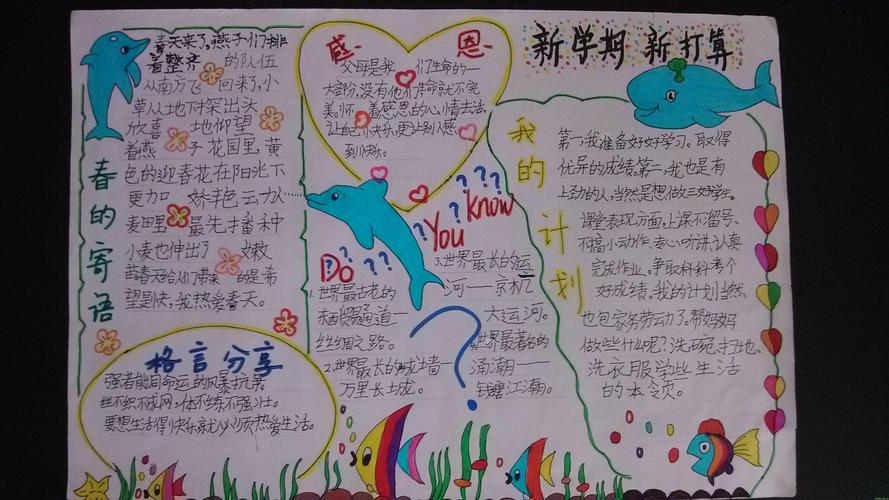 新学期 新打算
春的寄语
春天来了,燕子们排
着整齐 的队伍
从南方飞 回来了,小
草从土地下探出头
欣喜 地仰望
着燕 子花园里,黄
色的迎春花在阳光下
更加 娇艳
麦田里 最先播种
小麦也伸出了 嫩
苗春天给们带来 的是希
望是快,我热爱春天。
格言分享
强者能同命运的风暴抗争
丝不织不成网,体不练不强壮。
要想生活得快乐就必须热爱生活。
感 恩
父母是我 们生命的一
大部份,没有他们生命就不完
美,师 着感恩的心情去活,
让自己快乐,更让别人感
到快乐。
Do You Know
? ? ? ? ? ?
1.世界最古老的
东西贸易通道一
丝绸之路。
2.世界最长的城墙
万里长城。
3.世界最长的运
河——京杭
大运河。
世界最著名的
涌潮——
钱塘江潮。
我的计划
第一,我准备好好学习。取得
优异的成绩第二,我也是有
上劲的人,当然是想做三好学生。
课堂表现方面,上课不留号、
不搞小动作、专心听讲、认真
完成作业,争取科科考个
好成绩,我的计划当然
也包家务劳动了。帮妈妈
做些什么呢?洗碗、扫地、
洗衣服学些生活
的本领。